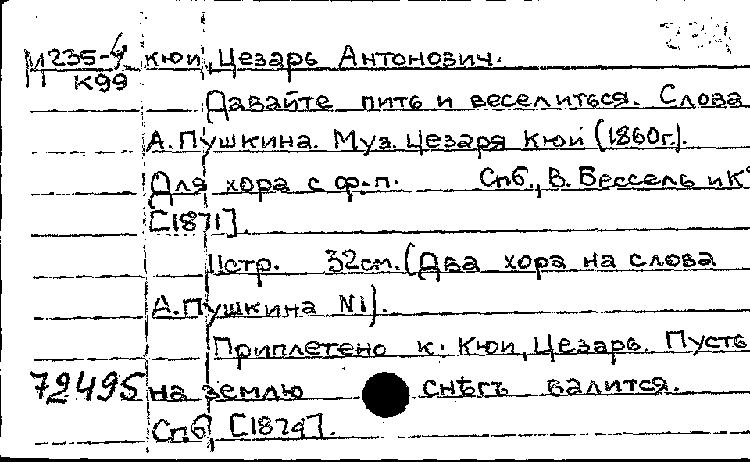 М235-4 Кюи, Цезарь Антонович.
К99
Давайте пить и веселиться. Слова
А.Пушкина. Муз. Цезаря Кюи (1860г.).
Для хора с ф-п. Спб., В. Бессель и К°
[1871].
11стр. 32см. (Два хора на слова
А.Пушкина №1).
Приплетено к: Кюи, Цезарь. Пусть
72495 на землю снѣгъ валится.
Спб, [1874].